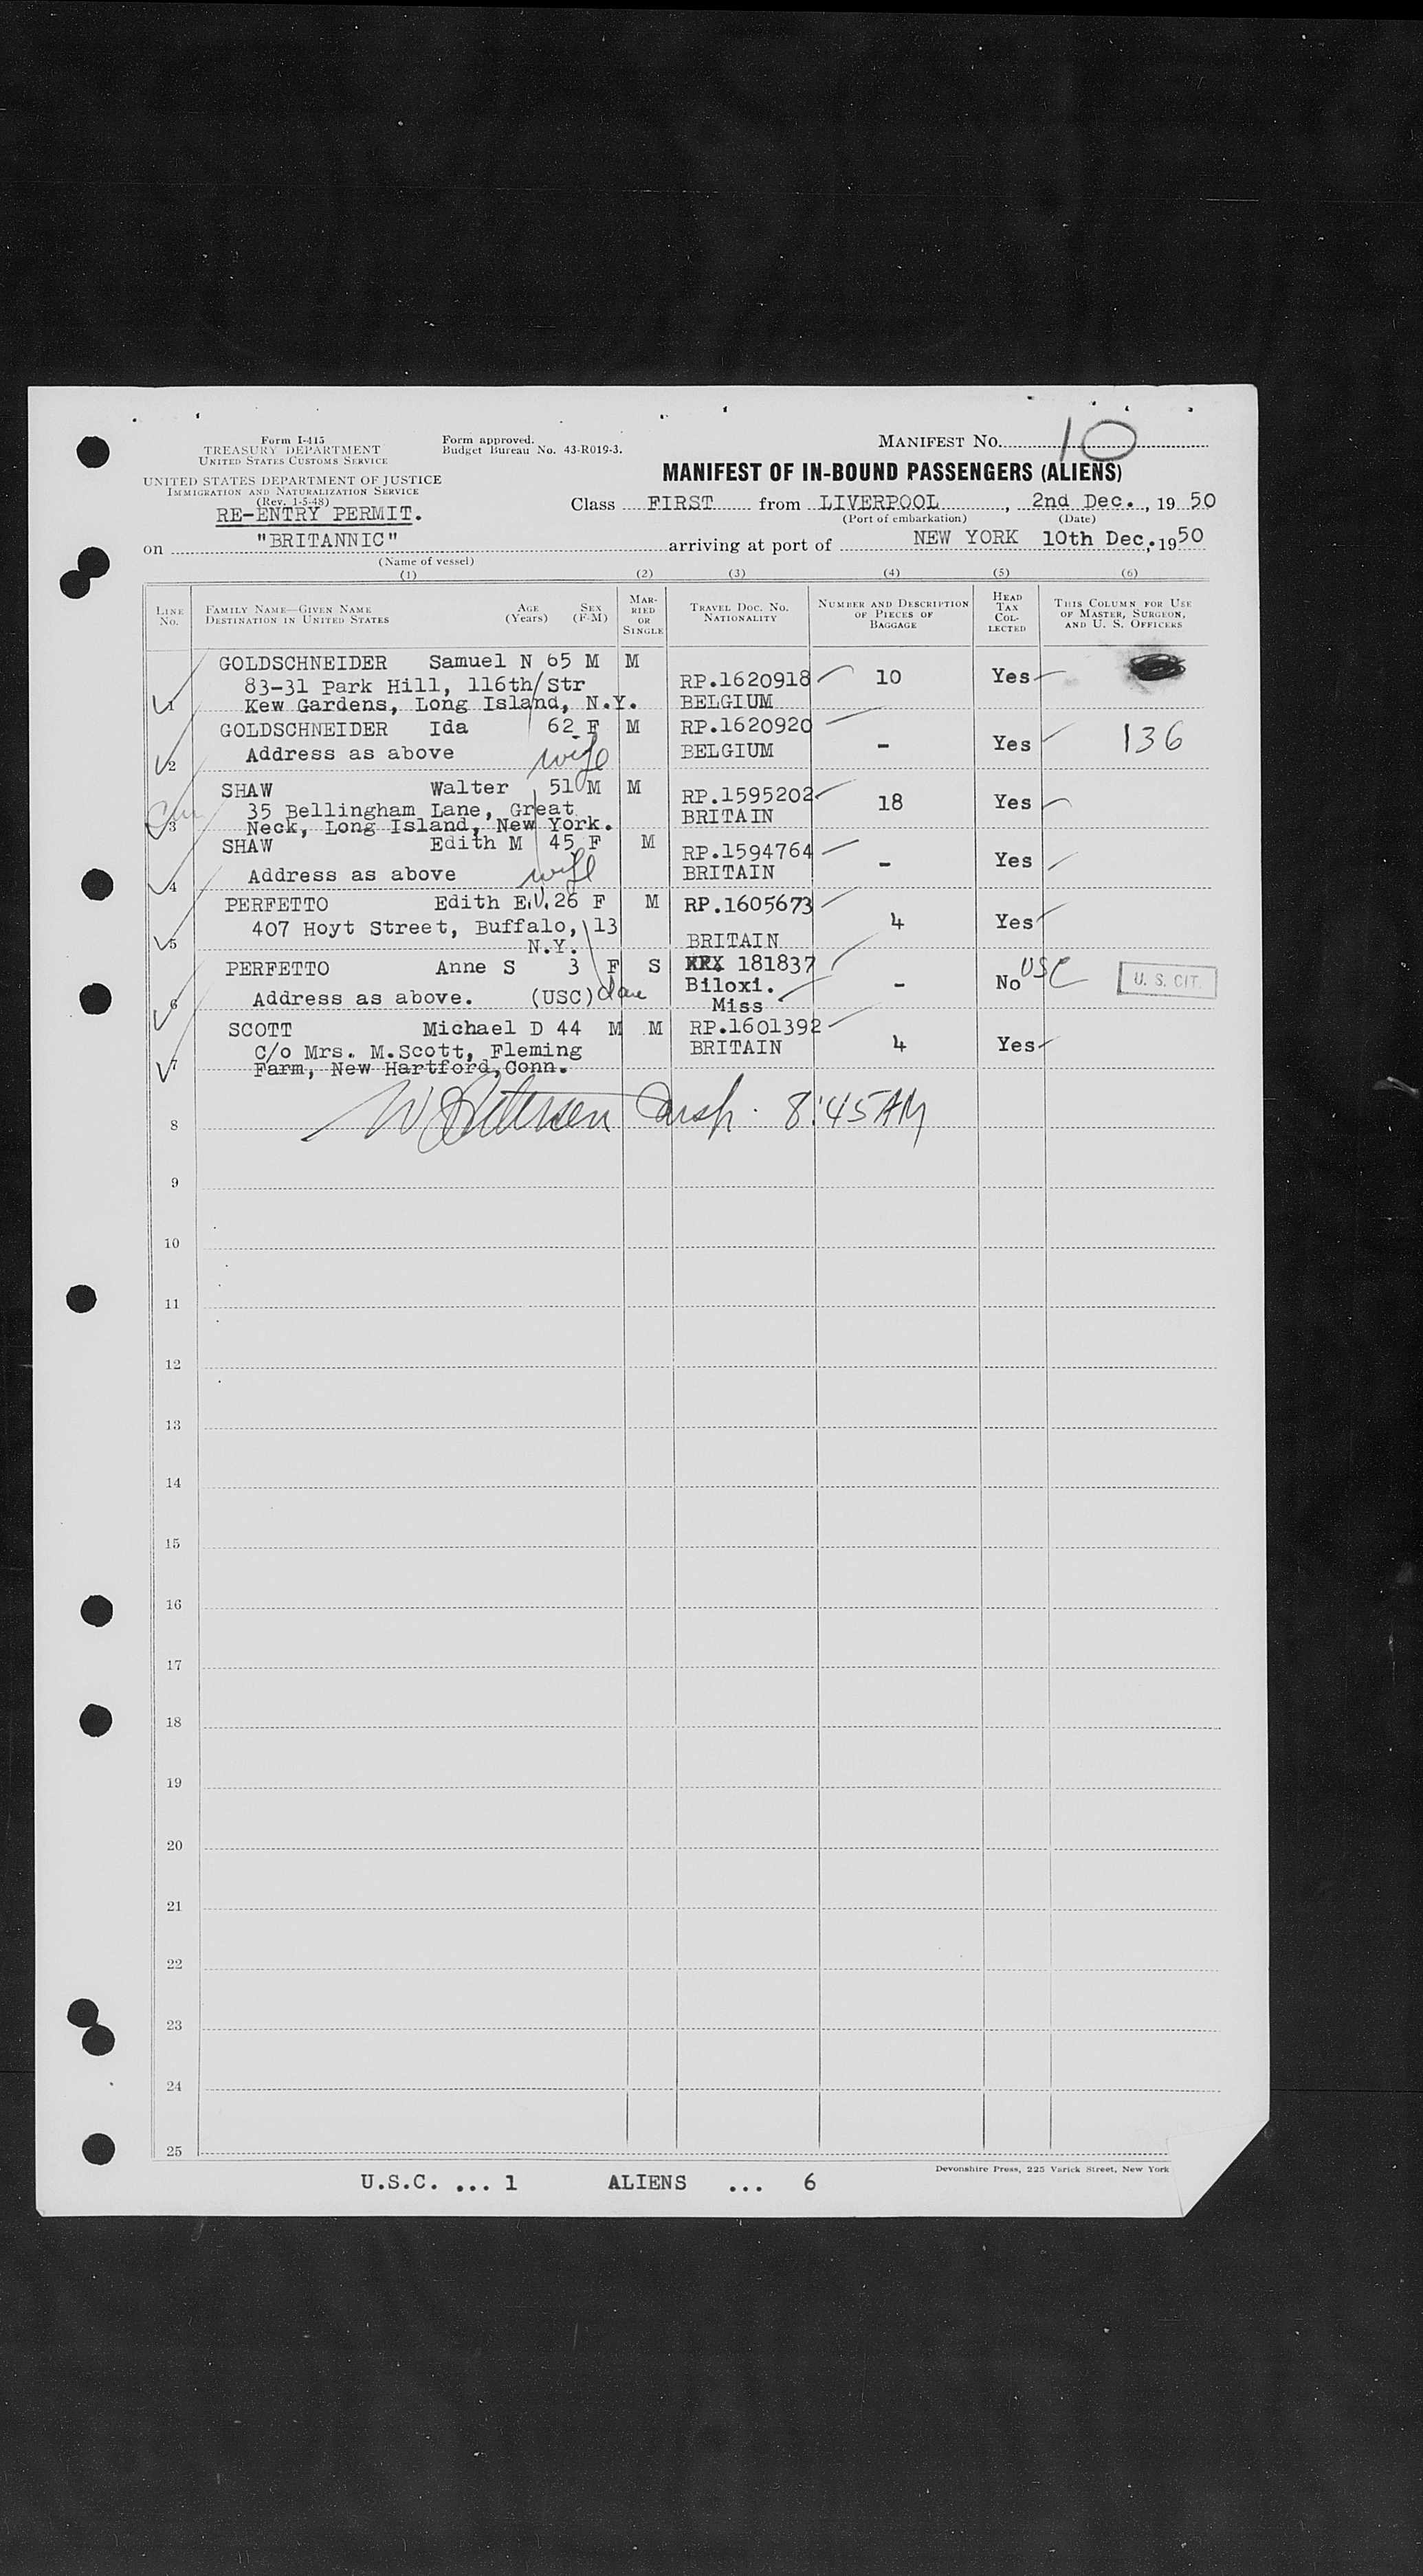 Form I-415
TREASURY DEPARTMENT
UNITED STATES CUSTOMS SERVICE
Form approved.
Budget Bureau No. 43-R019-3.
MANIFEST NO. 10
UNITED STATES DEPARTMENT OF JUSTICE
IMMIGRATION AND NATURALIZATION SERVICE
(Rev. 1-5-48)
RE-ENTRY PERMIT.
MANIFEST OF IN-BOUND PASSENGERS (ALIENS)
Class FIRST from LIVERPOOL, 2nd Dec., 19 50
(Port of embarkation) (Date)
on "BRITANNIC" arriving at port of NEW YORK 10th Dec., 19 50
(Name of vessel)
(1) (2) (3) (4) (5) (6)
LINE No. FAMILY NAME—GIVEN NAME DESTINATION IN UNITED STATES AGE (Years) SEX (F-M) MARRIED OR SINGLE TRAVEL DOC. NO. NATIONALITY NUMBER AND DESCRIPTION OF PIECES OF BAGGAGE HEAD TAX COLLECTED THIS COLUMN FOR USE OF MASTER, SURGEON, AND U. S. OFFICERS
GOLDSCHNEIDER Samuel N 65 M M
83-31 Park Hill, 116th Str RP.1620918 10 Yes
1 Kew Gardens, Long Island, N.Y. BELGIUM
GOLDSCHNEIDER Ida 62 F M RP.1620920
2 Address as above wife BELGIUM - Yes 136
SHAW Walter 51 M M
35 Bellingham Lane, Great RP.1595202 18 Yes
3 Neck, Long Island, New York. BRITAIN
SHAW Edith M 45 F M RP.1594764
4 Address as above wife BRITAIN - Yes
PERFETTO Edith E.V. 26 F M RP.1605673
407 Hoyt Street, Buffalo, 13 4 Yes
5 N.Y. BRITAIN
PERFETTO Anne S 3 F S 181837
6 Address as above. (USC) dau Biloxi. - No USC U. S. CIT.
Miss
SCOTT Michael D 44 M M RP.1601392
C/o Mrs. M.Scott, Fleming BRITAIN 4 Yes
7 Farm, New Hartford, Conn.
8 Insp. 8:45 AM
9
10
11
12
13
14
15
16
17
18
19
20
21
22
23
24
25
Devonshire Press, 225 Varick Street, New York
U.S.C. ... 1 ALIENS ... 6